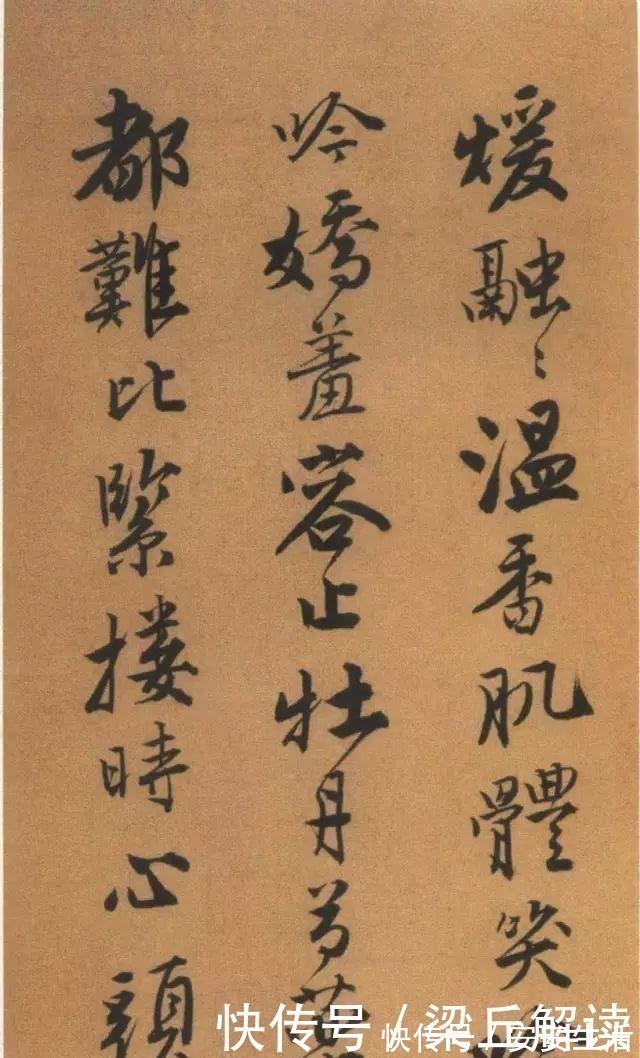 煖融々温香肌體笑
吟嬌羞容止牡丹芍
都難比緊摟時心頭
快传号 / 梁丘解读
快传号